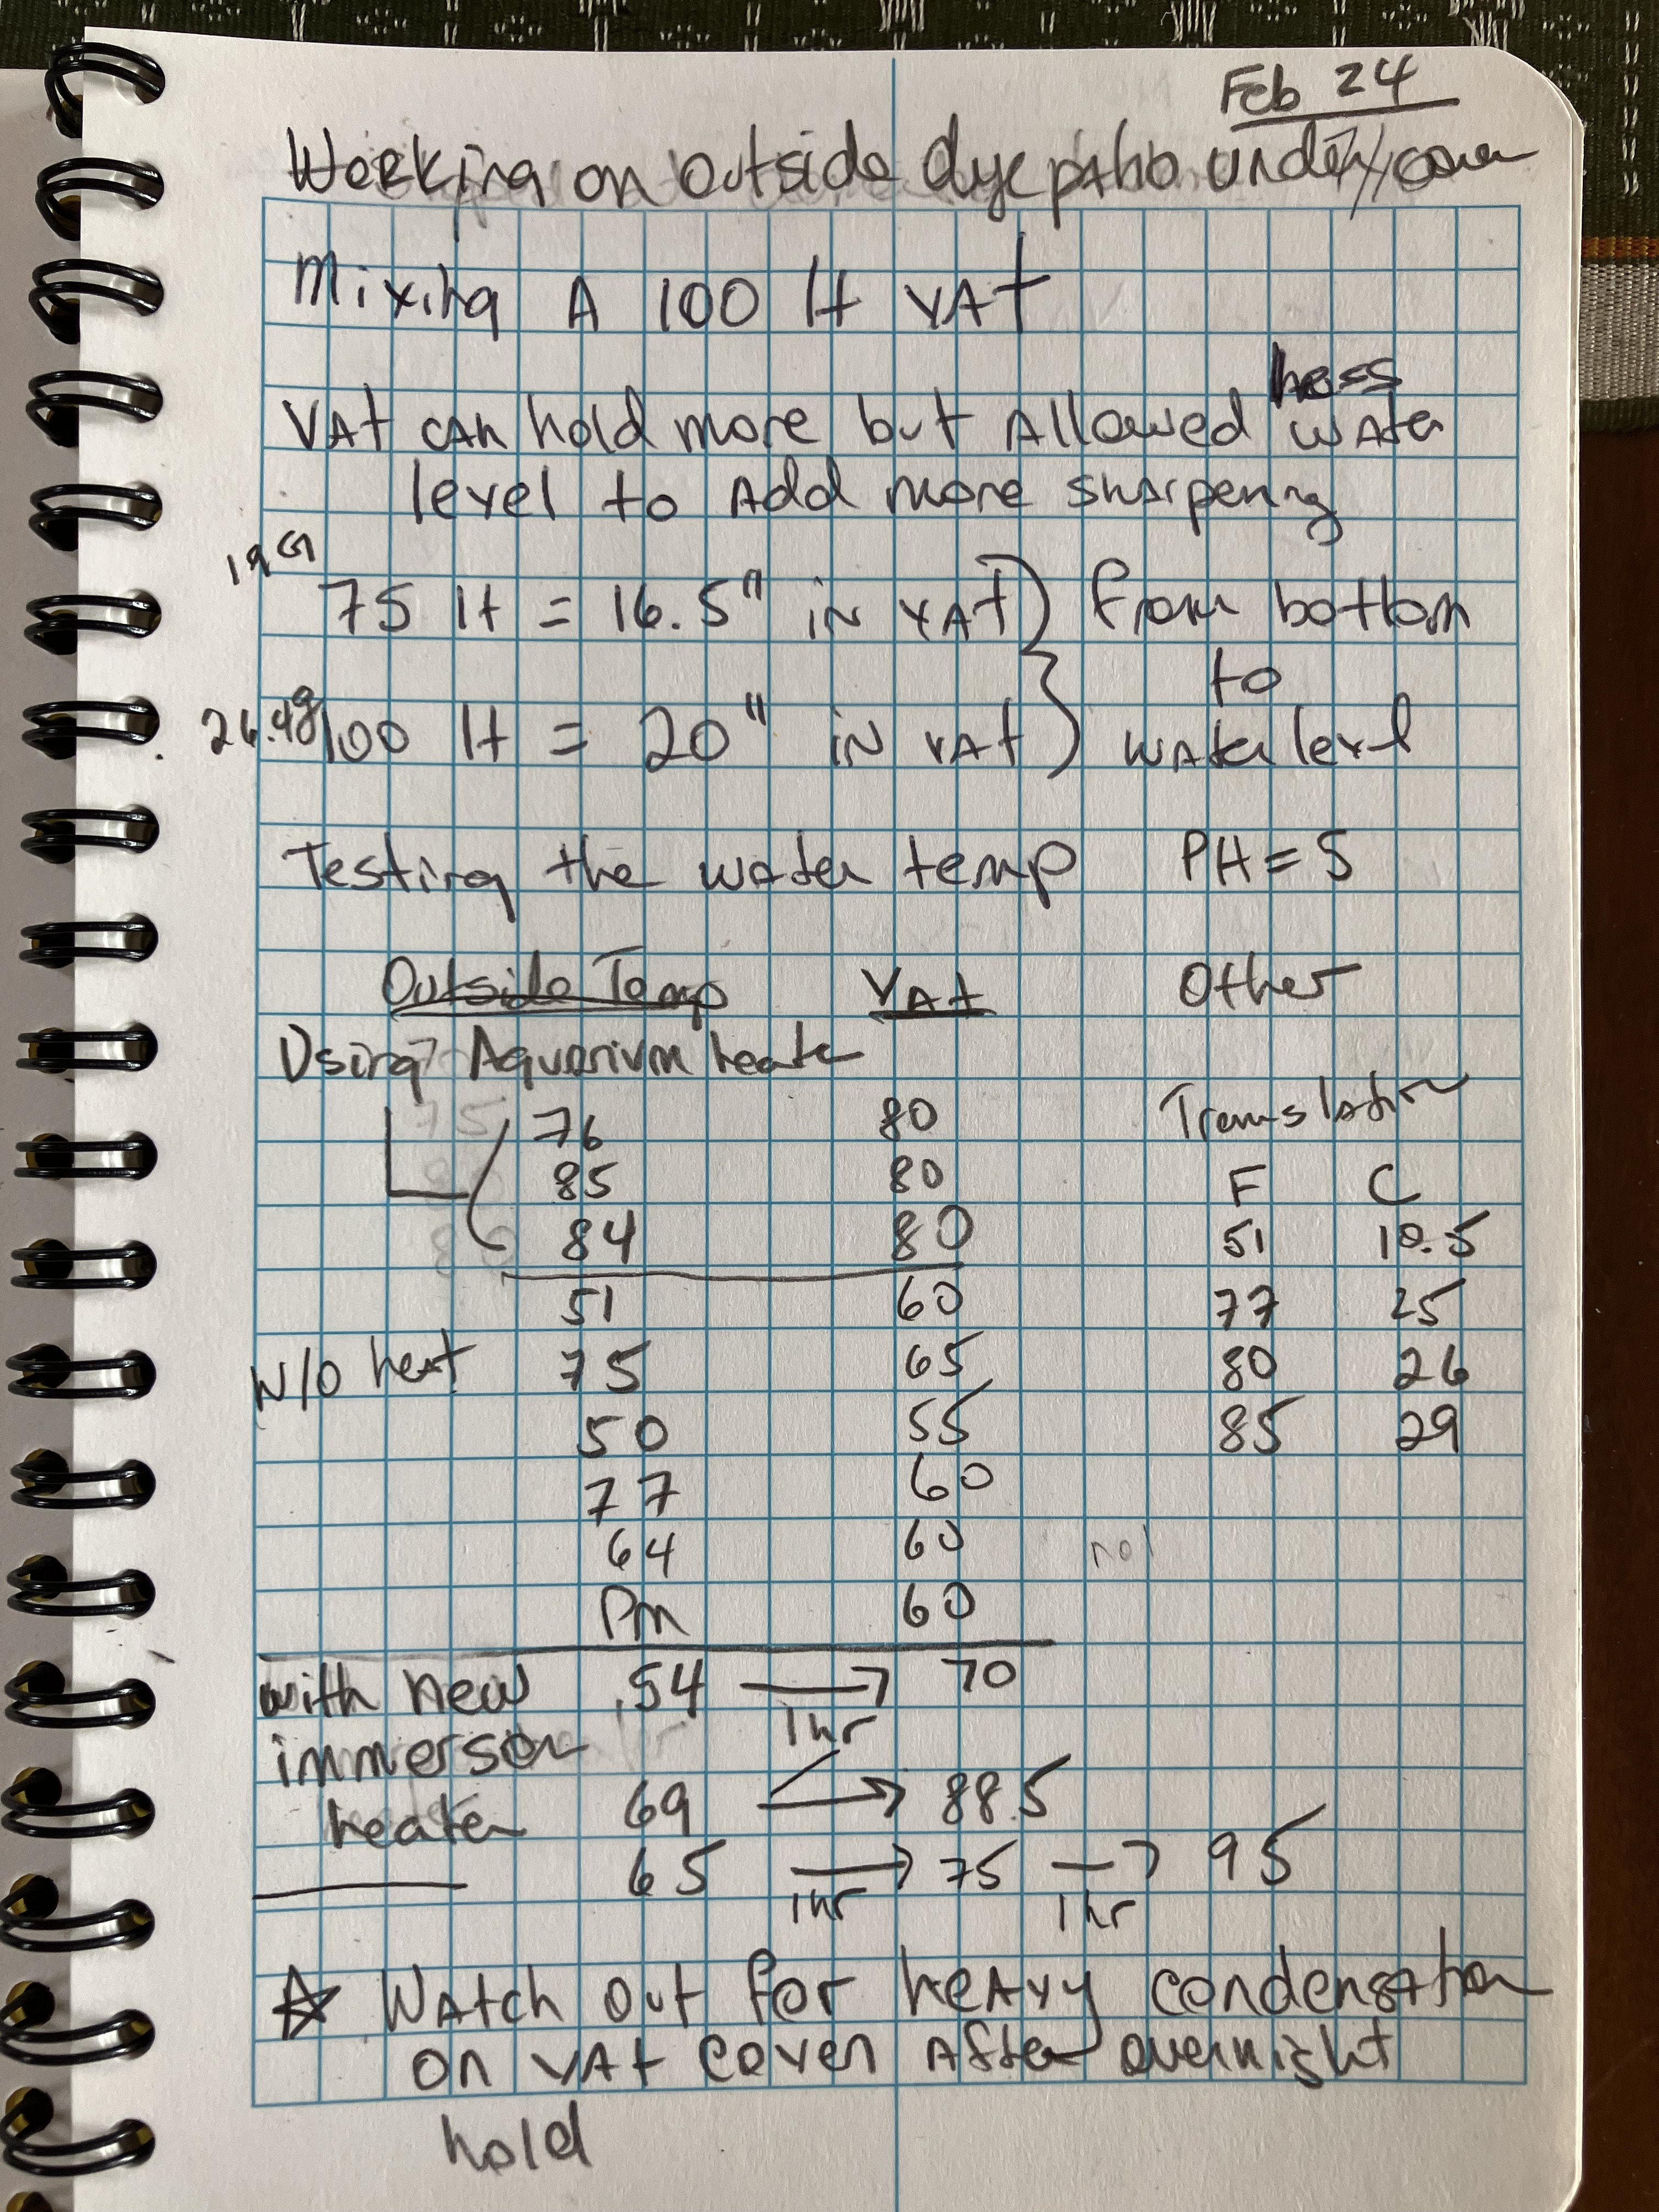 Feb 24
Working on outside dye patio under cover
Mixing A 100 lt VAt
less
VAt can hold more but Allowed water
level to Add more sharpening
19 G
75 lt = 16.5" in VAt } from bottom
to
26.4g 100 lt = 20" in VAt } water level
Testing the water temp PH = 5
Outside Temp VAt Other
Using Aquarium heater
76 80 Translation
85 80 F C
84 80 51 10.5
51 60 77 25
W/O heat 75 65 80 26
50 55 85 29
77 60
64 60
Pm 60
with new 54 → 70
1 hr
immerson
69 → 88.5
heater
65 → 75 → 95
1 hr 1 hr
☆ Watch out for heavy condensation
on VAt cover After overnight
hold